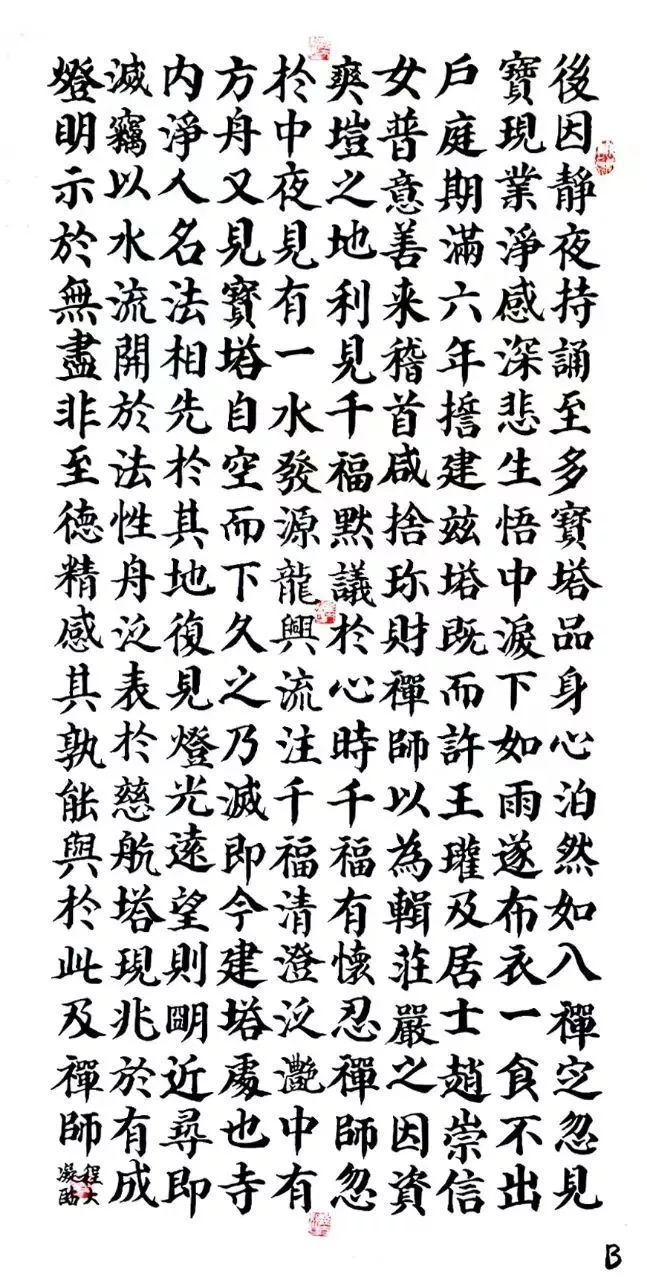 後因靜夜持誦至多寶塔品身心泊然如入禪定忽見
寶現業淨感深悲生悟中淚下如雨遂布衣一食不出
戶庭期滿六年誓建茲塔既而許王瓘及居士趙崇信
女普意善来稽首咸捨珎財禪師以為輯莊嚴之因資
爽塏之地利見千福默議於心時千福有懷忍禪師忽
於中夜見有一水發源龍興流注千福清澄泛灧中有
方舟又見寶塔自空而下久之乃滅即今建塔處也寺
内淨人名法相先於其地復見燈光遠望則明近尋即
滅竊以水流開於法性舟泛表於慈航塔現兆於有成
燈明示於無盡非至德精感其孰能與於此及禪師
程大
凝
B